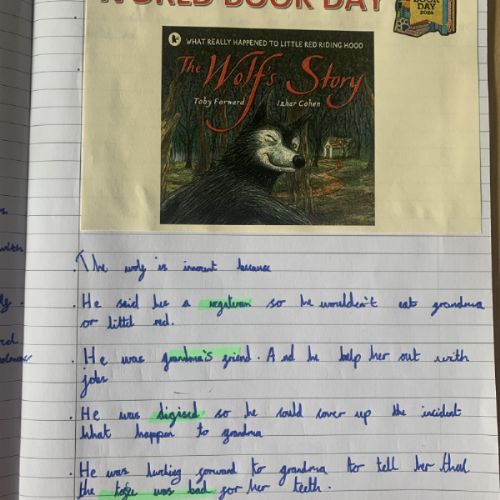 WORLD BOOK DAY
BOOK
DAY
2024
WHAT REALLY HAPPENED TO LITTLE RED RIDING HOOD
The Wolf's Story
Toby Forward Izhar Cohen
with
.The wolf is innocent because
.He said he's a vegetarian so he wouldn't eat grandma
or little red.
.He was grandma's friend. And he help her out with
jobs
.He was disgised so he could cover up the incident
What happen to grandma
.He was hurling forward to grandma to tell her that
the toffe was bad for her teeth.